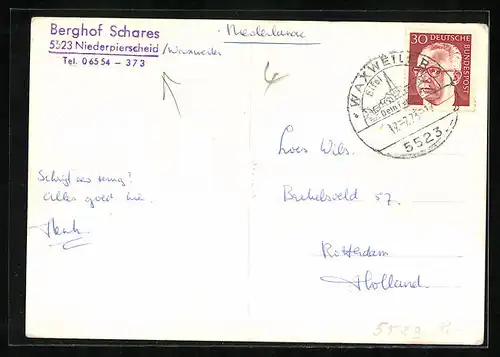 Berghof Schares
5523 Niederpierscheid /Waxweiler
Tel. 06554 – 373
Niederlande
30 DEUTSCHE
BUNDESPOST
WAXWEILER
Eifel
5523
Schrijf eens terug?
Alles goed hier.
Henk
Loes Wils.
57
Rotterdam
Holland.
5529